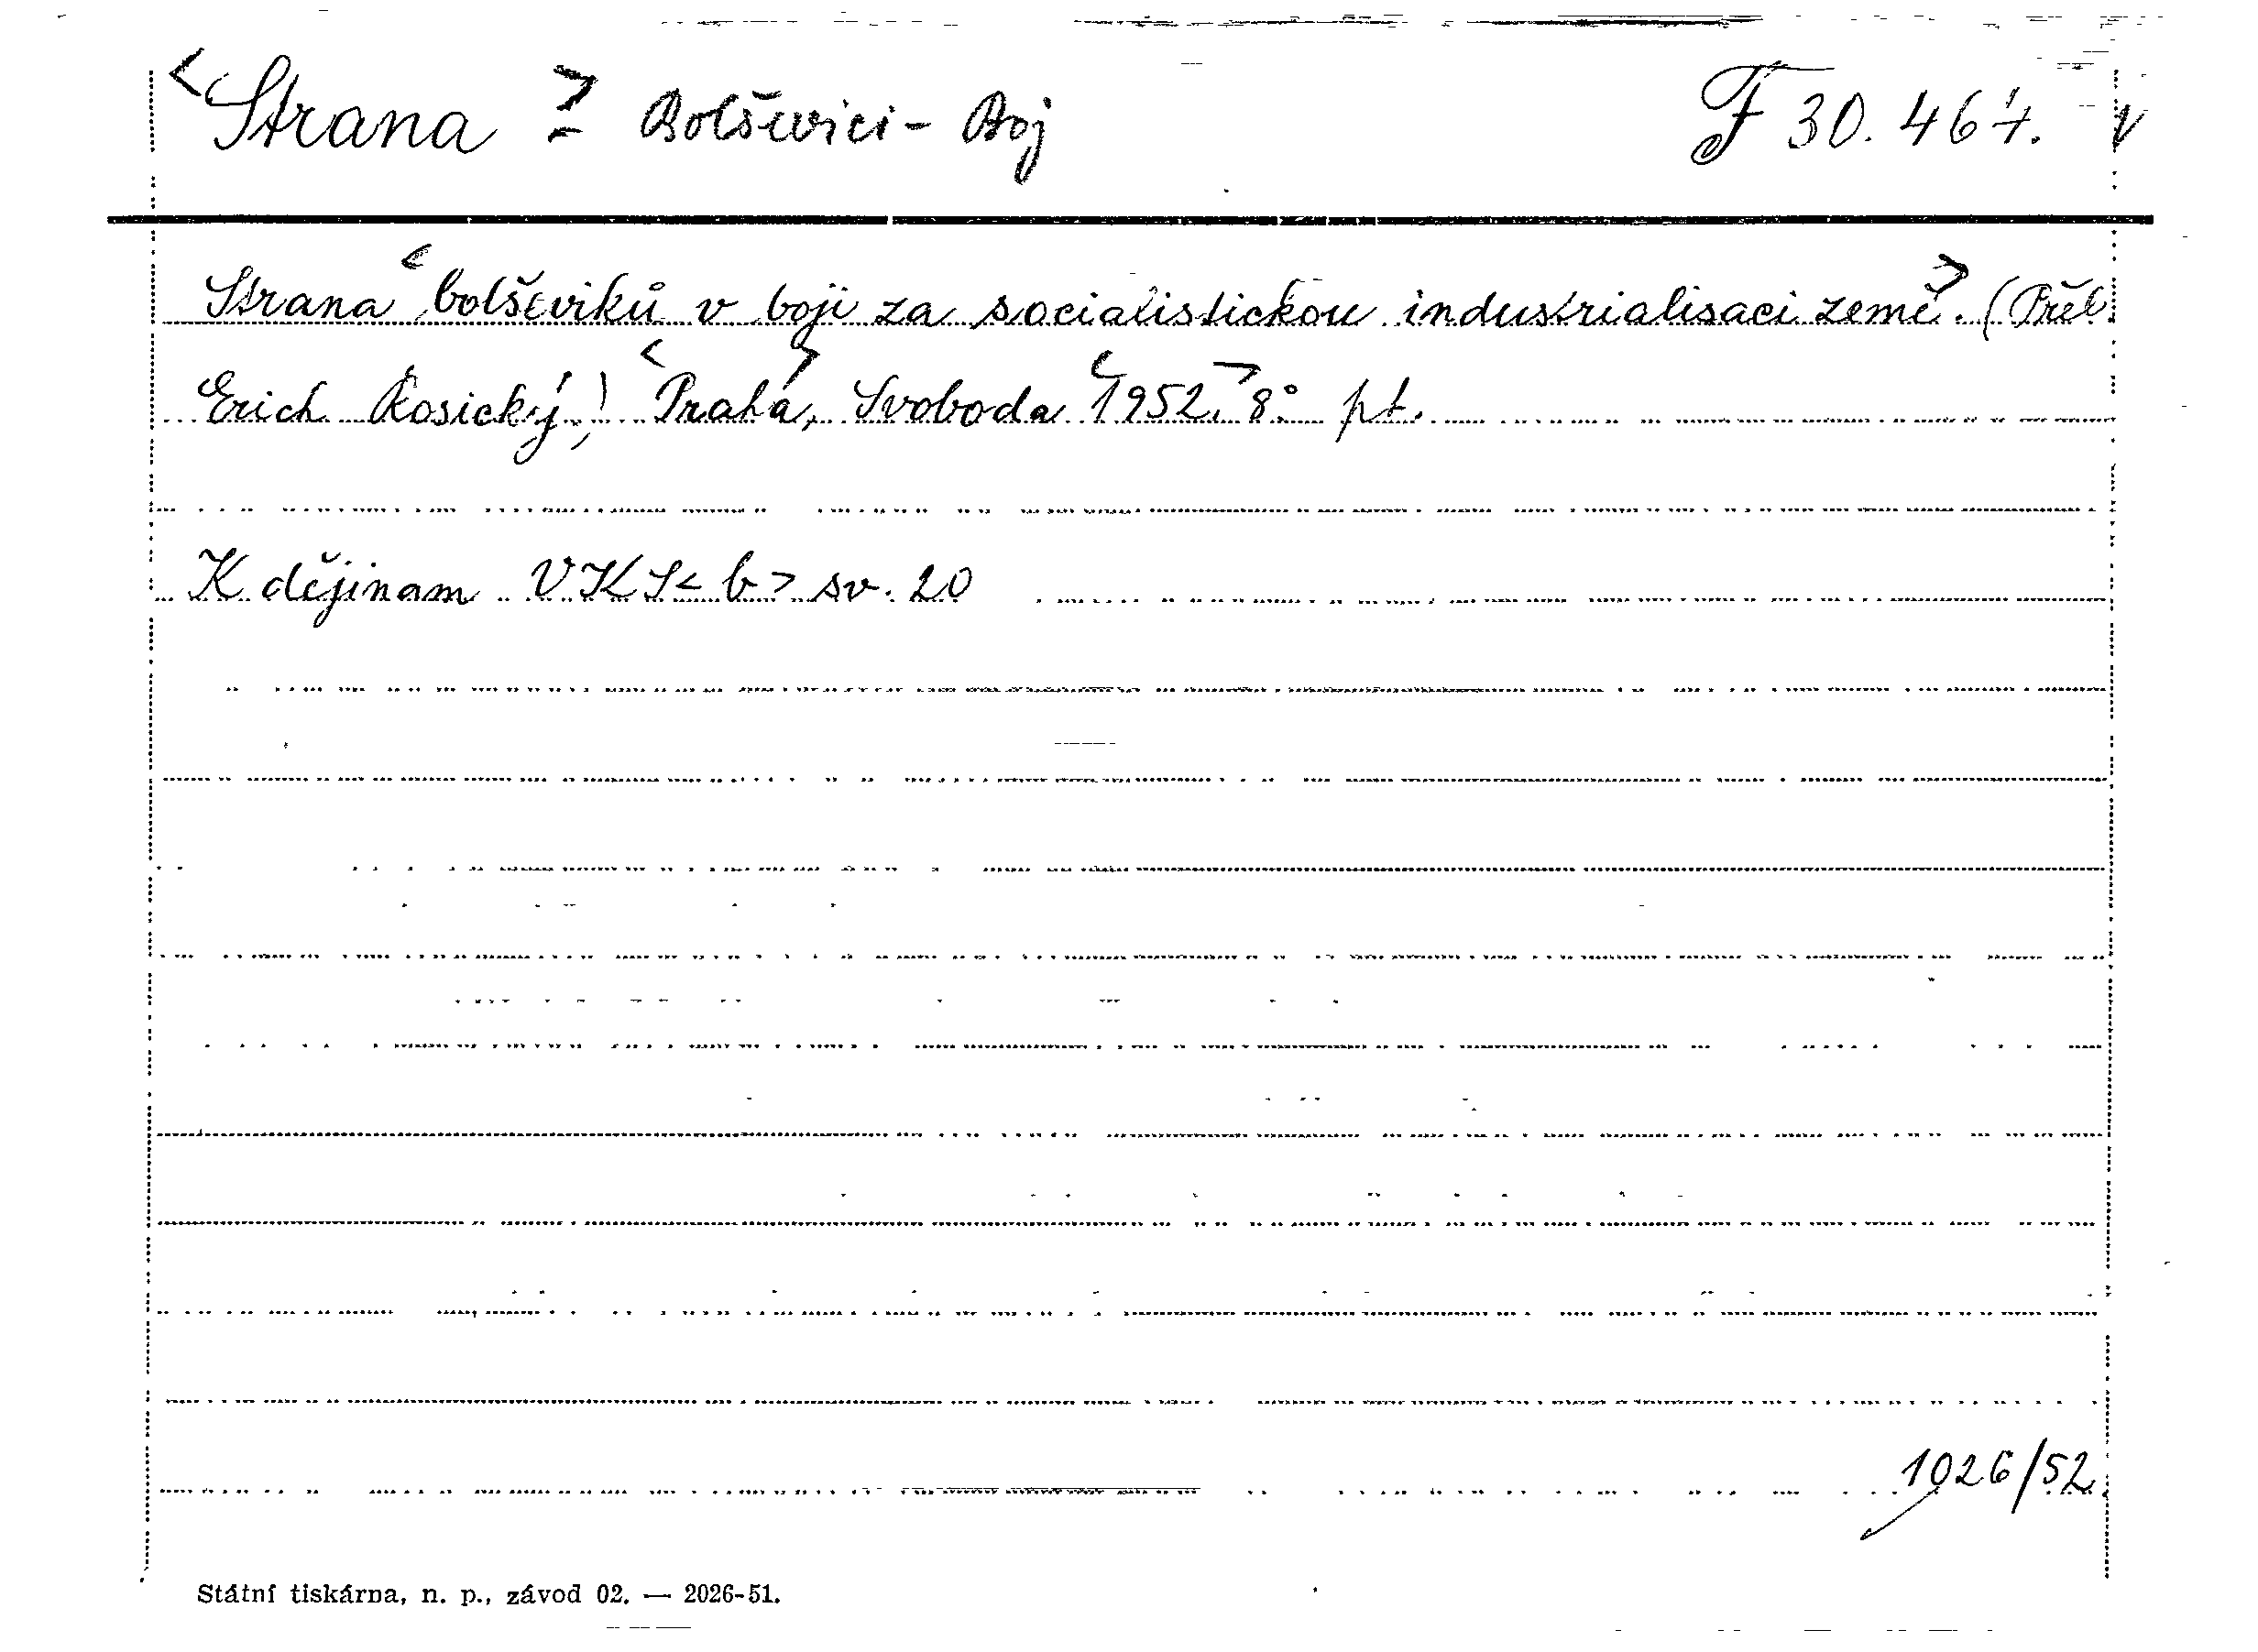 <Strana> - Bolševici - Boj F 30.467. V
Strana <bolševiků v boji za socialistickou industrialisaci země>. (Přel.
Erich Rosický.) <Praha>, Svoboda <1952.> 8° pt.
K dějinam VKS<b> sv. 20
1026/52.
Státní tiskárna, n. p., závod 02. — 2026-51.